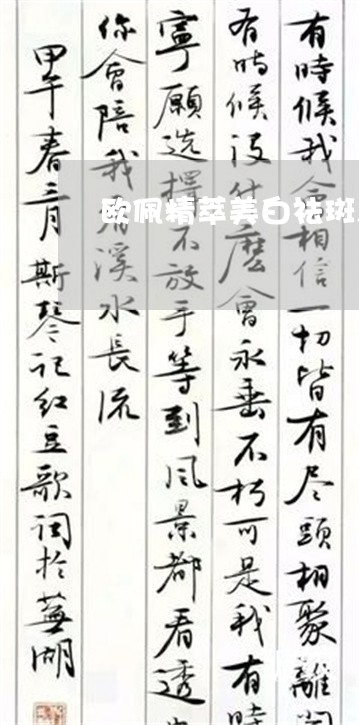 欧佩精萃美白祛斑
有時候我会相信一切皆有尽頭相聚離
有時候没什麼會永垂不朽可是我有時
寧願选擇不放手等到风景都看透
你會陪我看溪水長流
甲午春三月斯琴记红豆歌词於蕪湖